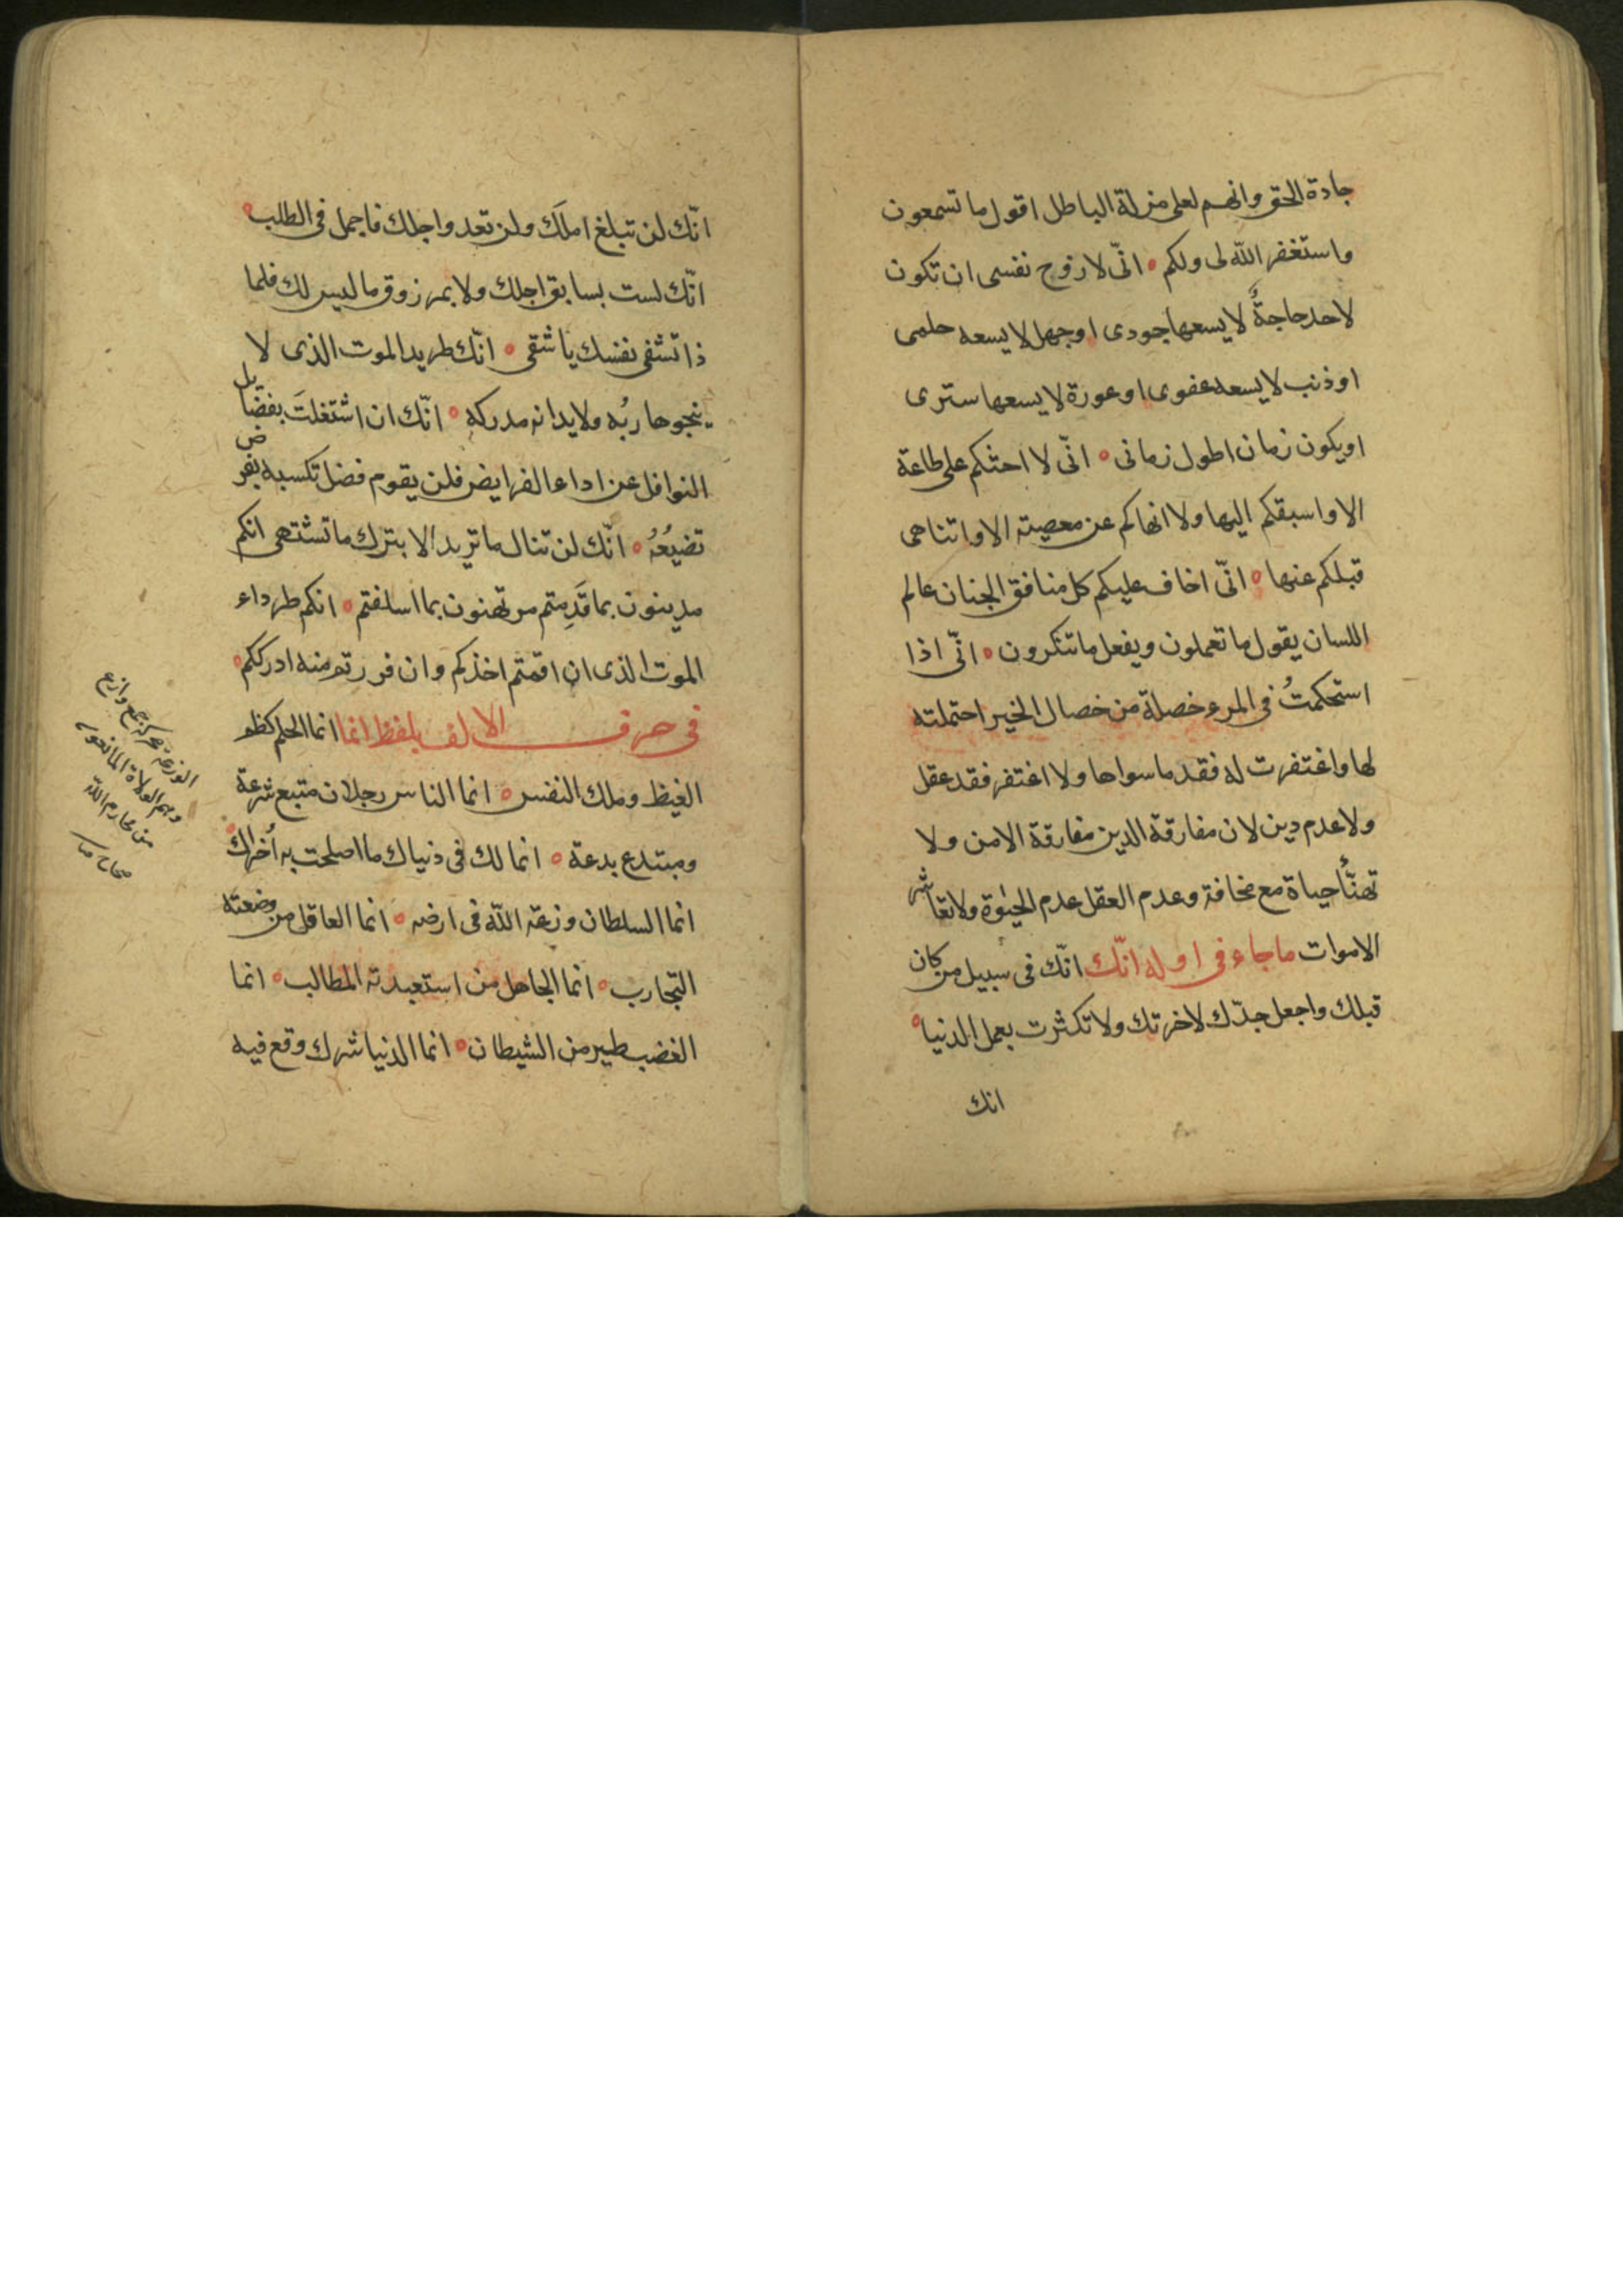 جادة الحق وانهم لعلى مزلة الباطل اقول ما تسمعون
واستغفر الله لى ولكم ه انّى لارفع نفسى ان تكون
لاحد حاجةٌ لا يسعها جودى او جهل لا يسعه حلمى
او ذنب لا يسعه عفوى او عورة لا يسعها سترى
او يكون زمان اطول زمانى ه انّى لا احثكم على طاعة
الا واسبقكم اليها ولا انهاكم عن معصيته الا واتناهى
قبلكم عنها ه انّى اخاف عليكم كل منافق الجنان عالم
اللسان يقول ما تعملون ويفعل ما تنكرون ه انّى اذا
استحكمتُ فى المرء خصلة من خصال الخير احتملته
لها واغتفرت له فقد ما سواها ولا اغتفر فقد عقل
ولا عدم دين لان مفارقة الدين مفارقة الامن ولا
تهنّأ حياة مع مخافة وعدم العقل عدم الحيوة ولا تعاشر
الاموات ما جاء فى اوله انّك انّك فى سبيل من كان
قبلك واجعل جدّك لاخرتك ولا تكثرت بعمل الدنيا ه
انك
انّك لن تبلغ املَك ولن تعدو اجلك فاجمل فى الطلب ه
انّك لست بسابق اجلك ولا بمرزوق ما ليس لك فلما
ذا تشفى نفسك يا شقى ه انّك طريد الموت الذى لا
ينجو هاربُه ولا بد انه مدركه ه انّك ان اشتغلتَ بفضايل
النوافل عن اداء الفرايض فلن يقوم فضل تكسبه بفرض
تضيّعُهُ ه انّك لن تنال ما تريد الا بترك ما تشتهى انكم
مدينون بما قَدِمتم مرتهنون بما اسلفتم ه انكم طرداء
الموت الذى ان اقمتم اخذكم وان فررتم منه ادرككم ه
فى حرف الالف بلفظ انما انما الحلم كظم
الغيظ وملك النفس ه انما الناس رجلان متبع شرعة
ومبتدع بدعة ه انما لك فى دنياك ما اصلحت به اُخراك ه
انما السلطان وزعة الله فى ارضه ه انما العاقل من وضعته
التجارب ه انما الجاهل من استعبدته المطالب ه انما
الغضب طير من الشيطان ه انما الدنيا شرك وقع فيه
الوزعة جمع وازع
وهم الولاة المانعون
من محارم الله